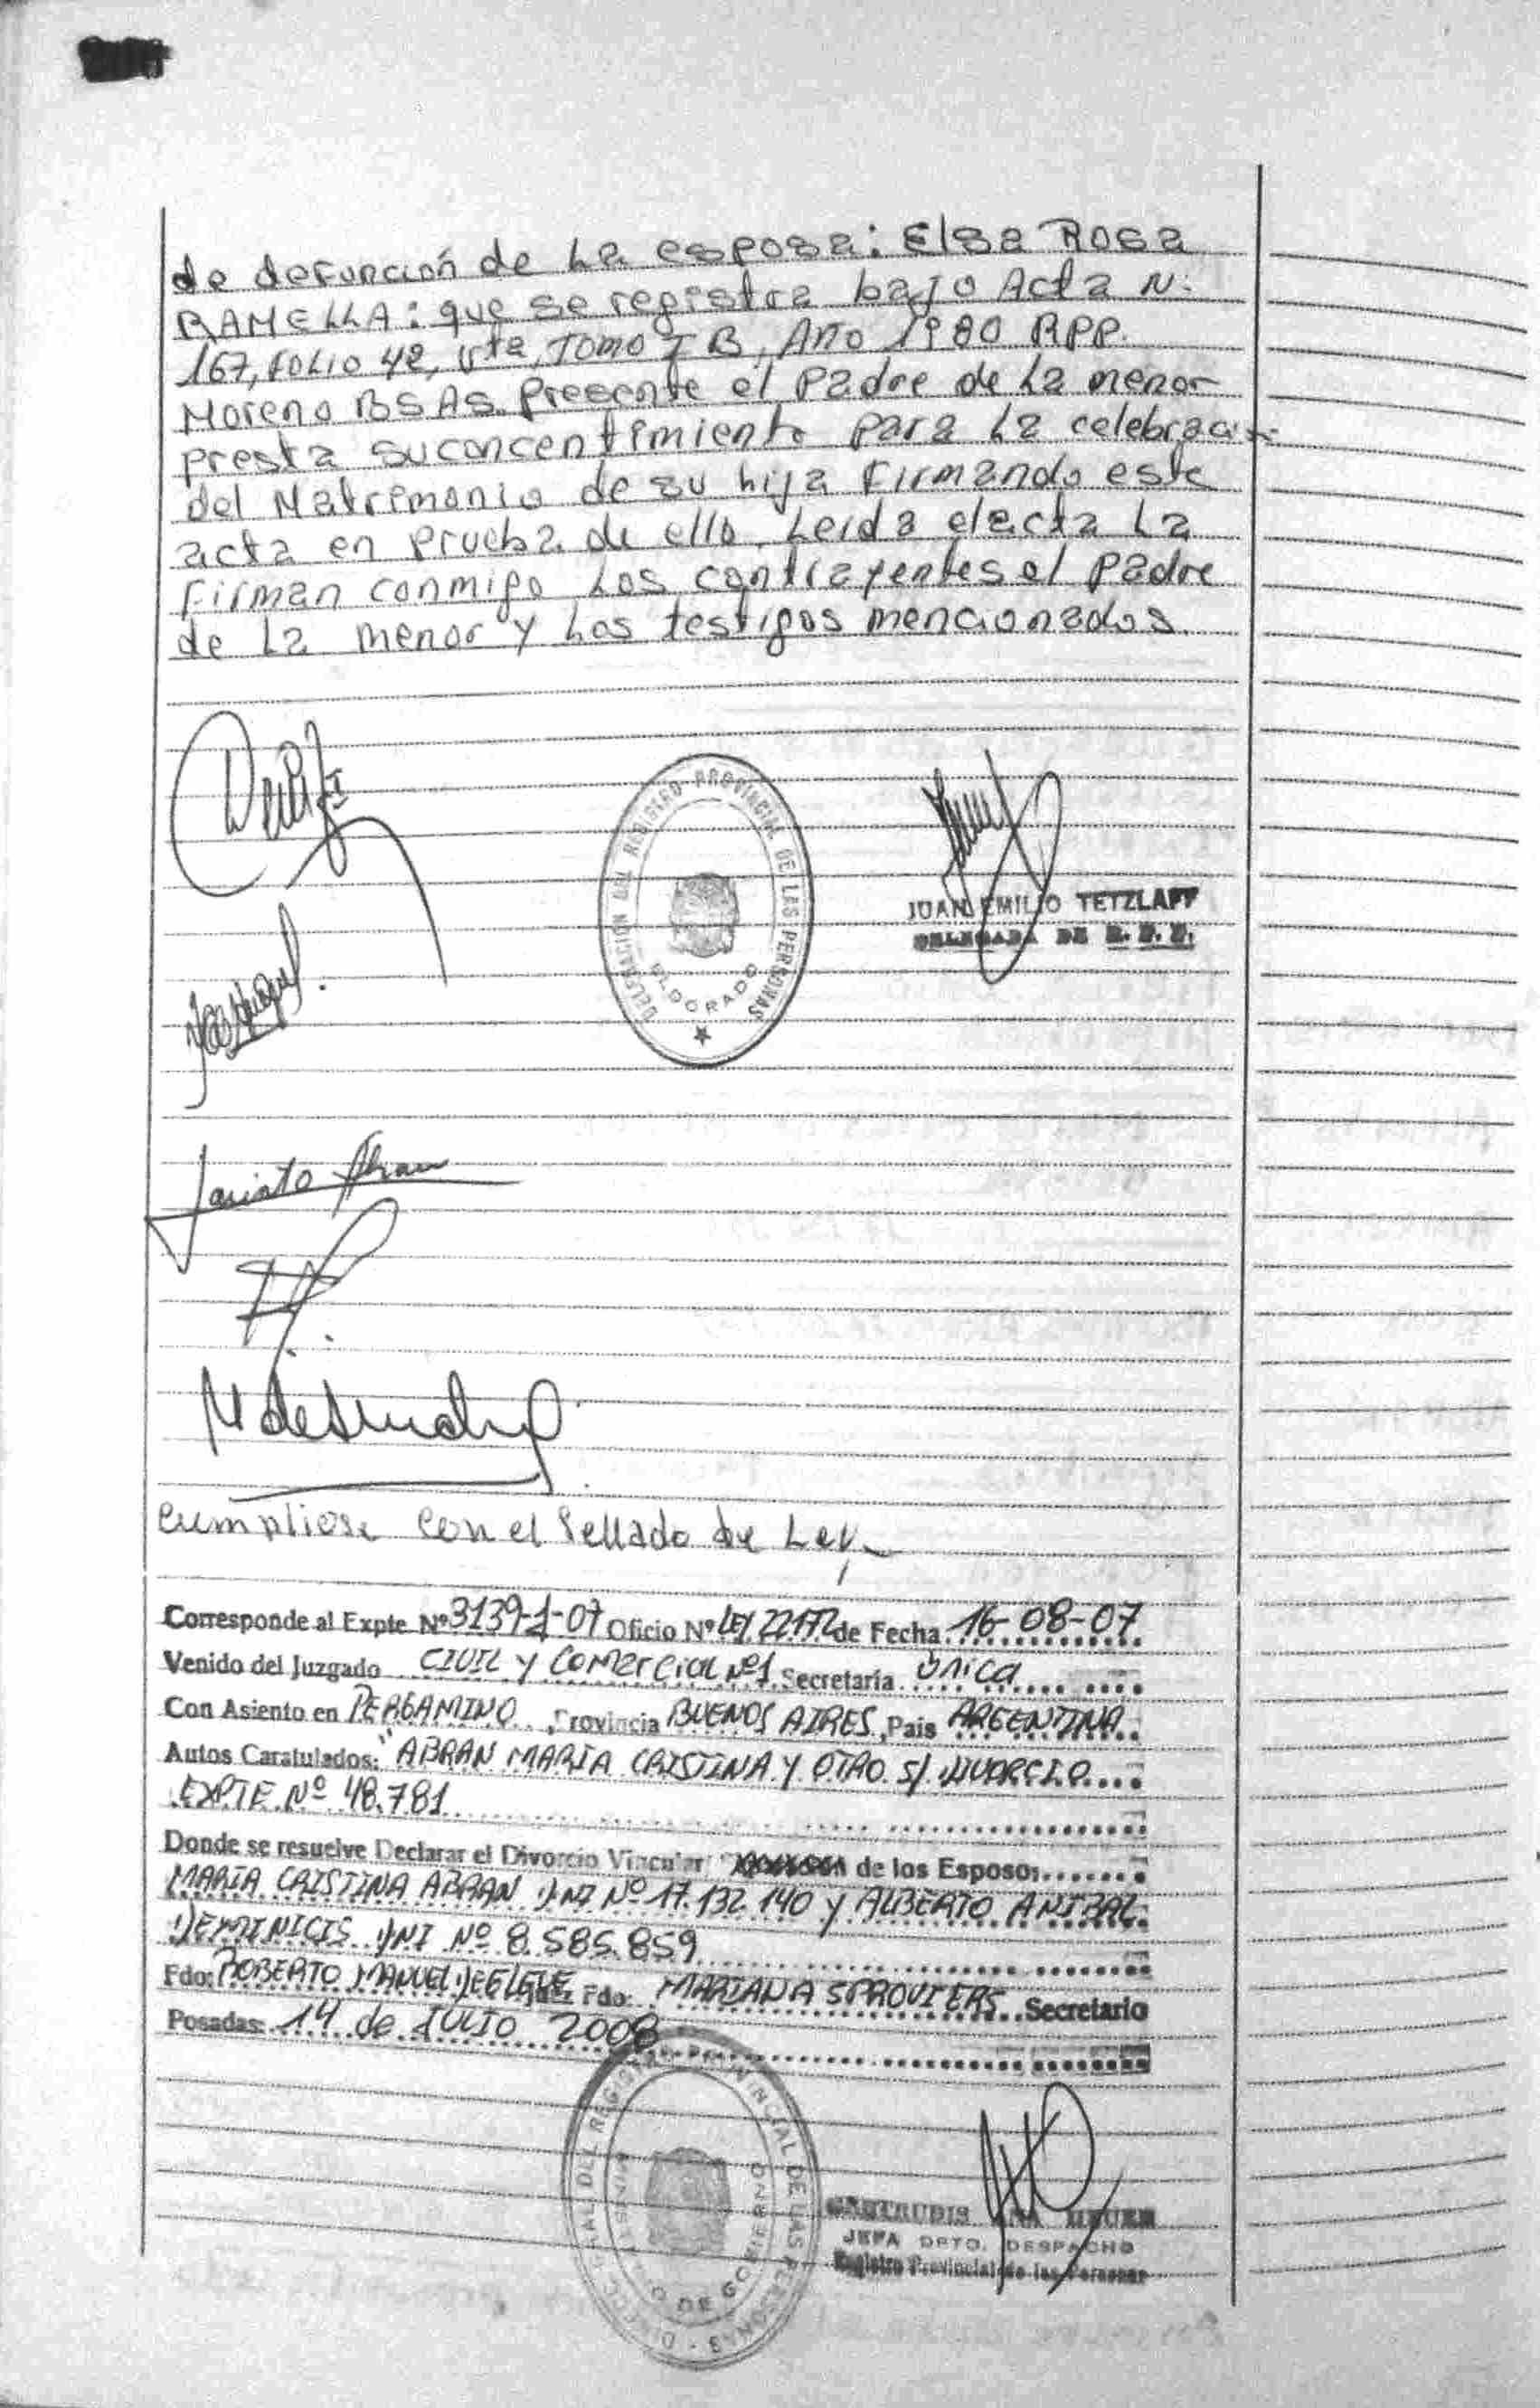 de defunción de La esposa: Elsa Rosa
RAMELLA: que se registra bajo Acta N:
167, FOLIO 42, Vta, TOMO I B, Año 1980 RPP.
Moreno BS AS. Presente el Padre de La menor
presta suconcentimiento para La celebrac
del Matrimonio de su hija Firmando este
acta en prueba de ello. Leida elacta La
Firman conmigo Los contrayentes el padre
de La menor y Los testigos mencionados
DELEGACION DEL REGISTRO PROVINCIAL DE LAS PERSONAS
ELDORADO
JUAN EMILIO TETZLAFF
DELEGADA DE R. P. P.
Jacinto Abran
Cumpliose con el Sellado de Ley
Corresponde al Expte Nº 3139-1-07 Oficio Nº LEY 22172 de Fecha 16-08-07
Venido del Juzgado CIVIL Y COMERCIAL Nº1 Secretaría única
Con Asiento en PERGAMINO, Provincia BUENOS AIRES, Pais ARGENTINA
Autos Caratulados: "ABRAN MARÍA CRISTINA Y OTRO S/ DIVORCIO
EXPTE Nº 48.781
Donde se resuelve Declarar el Divorcio Vincular de los Esposos
MARIA CRISTINA ABRAN DNI Nº 17.132.140 y ALBERTO ANIBAL
DEMINICIS DNI Nº 8.585.859
Fdo: ROBERTO MANUEL Juez Fdo: MARIANA Secretario
Posadas: 14 de JULIO 2008
DIRECC. GRAL DEL REGISTRO PROVINCIAL DE LAS PERSONAS
MINISTERIO DE GOBIERNO
ANA
JEFA DPTO. DESPACHO
Registro Provincial de las Personas